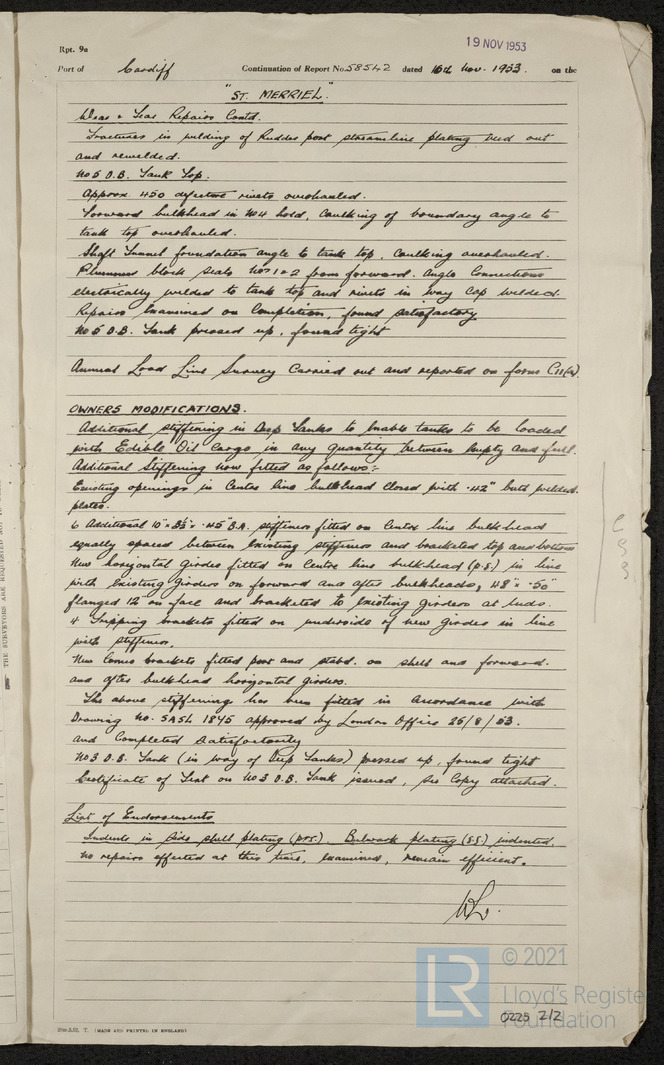 Rpt. 9a
19 NOV 1953
Port of Cardiff Continuation of Report No. 58542 dated 16th Nov. 1953. on the
"ST. MERRIEL".
Wear & Tear Repairs Contd.
Fractures in welding of Rudder post streamline plating veed out
and rewelded.
No 5 D.B. Tank Top.
Approx 450 defective rivets overhauled.
Forward bulkhead in No4 hold, caulking of boundary angle to
tank top overhauled.
Shaft Tunnel foundation angle to tank top, caulking overhauled.
Plummer block seats Nos 1 & 2 from forward. Angle connections
electrically welded to tank top and rivets in way cap welded.
Repairs Examined on Completion, found satisfactory
No 5 D.B. Tank pressed up, found tight
Annual Load Line Survey Carried out and reported on form C11(a).
OWNERS MODIFICATIONS.
Additional stiffening in Deep Tanks to Enable tanks to be loaded
with Edible Oil Cargo in any quantity between Empty and full.
Additional Stiffening now fitted as follows:-
Existing openings in Centre line bulkhead closed with .42" butt welded
plates.
6 Additional 10" x 3½" x .45" B.A. stiffeners fitted on Centre line bulkhead
equally spaced between existing stiffeners and bracketed top and bottom
New horizontal Girder fitted on Centre line bulkhead (P.S.) in line
with existing Girders on forward and after bulkheads, 48" x .50"
flanged 12" on face and bracketed to existing girders at ends.
4 Tripping brackets fitted on underside of new girder in line
with stiffeners.
New Corner brackets fitted port and starbd. on shell and forward.
and after bulkhead horizontal girders.
The above stiffening has been fitted in accordance with
Drawing No. SASL 1845 approved by London Office 25/8/53.
and Completed Satisfactorily
No3 D.B. Tank (in way of Deep Tanks) pressed up, found tight
Certificate of Test on No 3 D.B. Tank issued, see Copy attached.
List of Endorsements
Indents in Side shell plating (P&S.). Bulwark plating (S.S) indented.
No repairs effected at this time, examined, remain efficient.
THE SURVEYORS ARE REQUESTED NOT TO
(MADE AND PRINTED IN ENGLAND)
LR
© 2021
Lloyd's Register
Foundation
0225 2/2